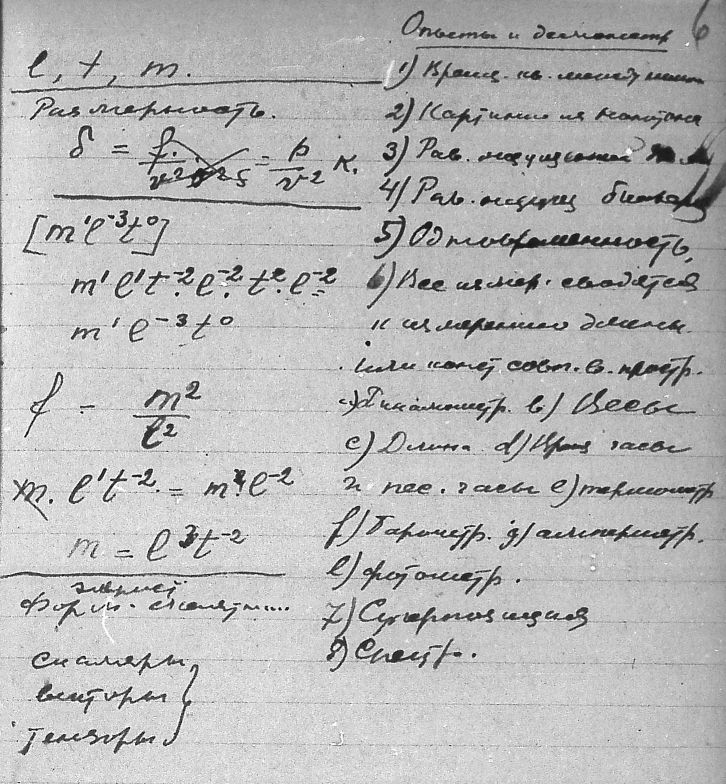 l, t, m.
Размерность.
δ = f/v² = p/v² к.
[m¹l⁻³t⁰]
m¹ l¹ t⁻². l⁻². t². l⁻²
m¹ l⁻³ t⁰
f = m²/l²
m. l¹t⁻² = m². l⁻²
m = l³t⁻²
Форм.
скаляры
векторы
тензоры
6
Опыты и демонстр
1)
2) Картинки из Ньютона
3) Рав.
4) Рав.
5) Одновременность,
6) Все измер. сводятся
к измерению длины.
или конст совп. в. простр.
a) Динамометр. b) Весы
c) Длина. d) часы
и пес. часы e) термометр
f) Барометр. g) амперметр.
l) фотометр.
7) Суперпозиция
8) Спектр.